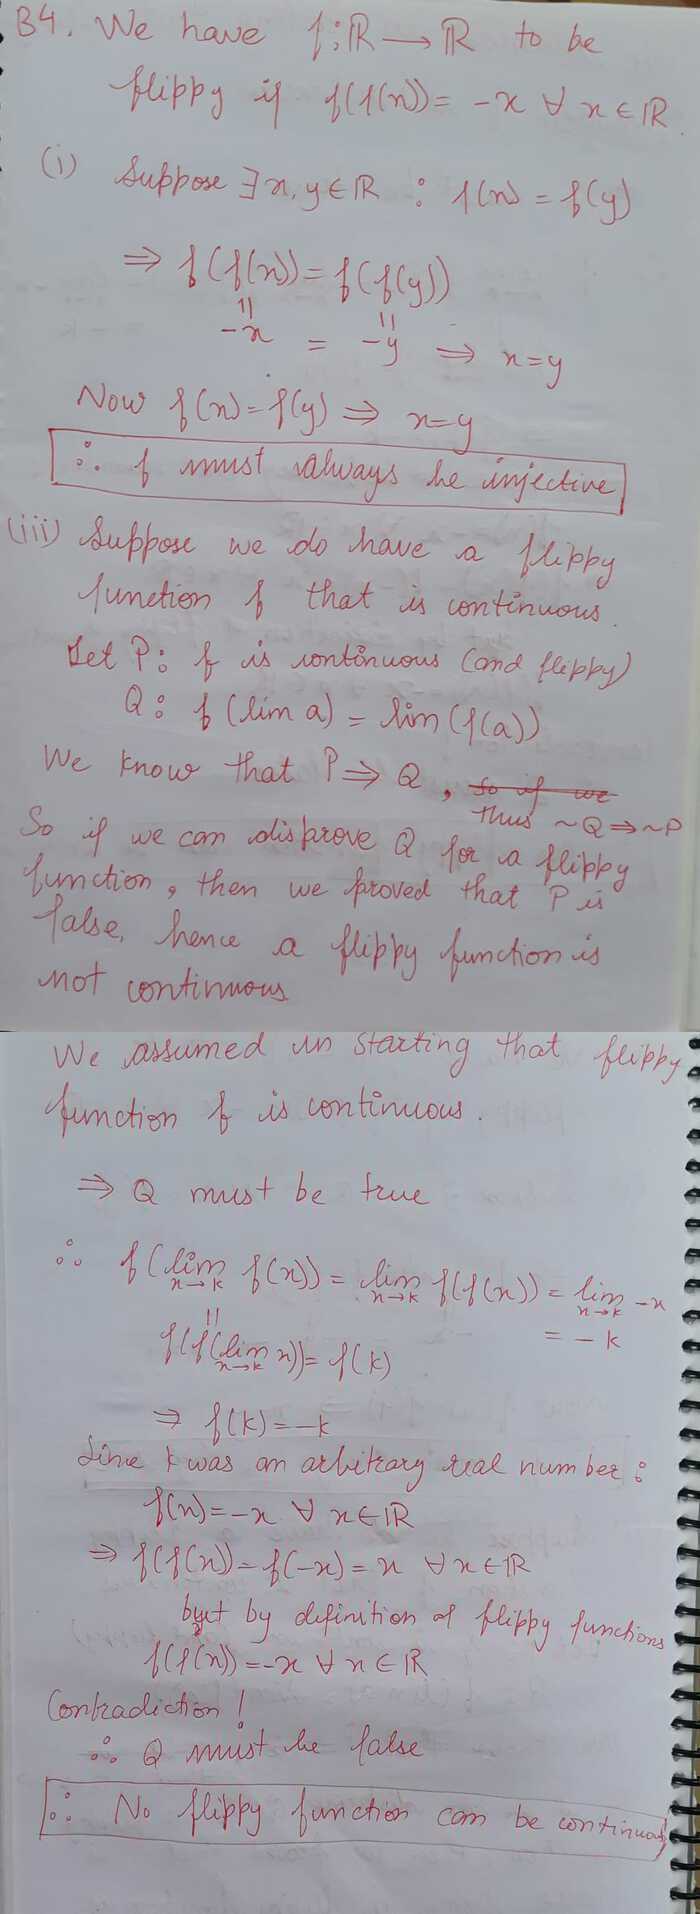 B4. We have f: ℝ → ℝ to be
flippy if f(f(x)) = -x ∀ x ∈ ℝ.
(i) Suppose ∃ x, y ∈ ℝ : f(x) = f(y)
⇒ f(f(x)) = f(f(y))
= =
-x = -y ⇒ x=y
Now f(x) = f(y) ⇒ x=y
∴ f must always be injective
(iii) Suppose we do have a flippy
function f that is continuous.
Let P: f is continuous (and flippy)
Q: f(lim a) = lim(f(a))
We know that P ⇒ Q, so if we
thus ~Q ⇒ ~P
So if we can disprove Q for a flippy
function, then we proved that P is
false, hence a flippy function is
not continuous
We assumed in starting that flippy
function f is continuous.
⇒ Q must be true
∴ f(lim x→k f(x)) = lim x→k f(f(x)) = lim x→k -x
= = -k
f(f(lim x→k x)) = f(k)
⇒ f(k) = -k
Since k was an arbitrary real number:
f(x) = -x ∀ x ∈ ℝ
⇒ f(f(x)) = f(-x) = x ∀ x ∈ ℝ
but by definition of flippy functions
f(f(x)) = -x ∀ x ∈ ℝ
Contradiction!
∴ Q must be false
∴ No flippy function can be continuous